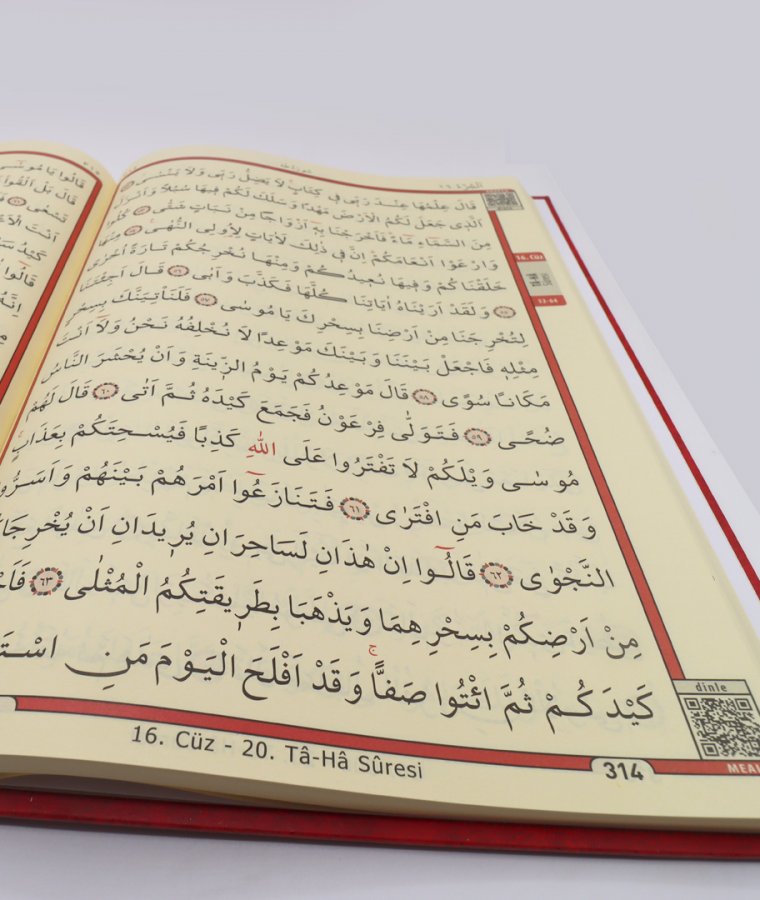 قَالَ عِلْمُهَا عِنْدَ رَبّ۪ي ف۪ي كِتَابٍ لَا يَضِلُّ رَبّ۪ي وَلَا يَنْسٰىۘ ﴿٥٢﴾
اَلَّذ۪ي جَعَلَ لَكُمُ الْاَرْضَ مَهْدًا وَسَلَكَ لَكُمْ ف۪يهَا سُبُلًا وَاَنْزَلَ
مِنَ السَّمَٓاءِ مَٓاءً فَاَخْرَجْنَا بِه۪ٓ اَزْوَاجًا مِنْ نَبَاتٍ شَتّٰى ﴿٥٣﴾ كُلُوا
وَارْعَوْا اَنْعَامَكُمْ اِنَّ ف۪ي ذٰلِكَ لَاٰيَاتٍ لِاُولِي النُّهٰى ﴿٥٤﴾ مِنْهَا
خَلَقْنَاكُمْ وَف۪يهَا نُع۪يدُكُمْ وَمِنْهَا نُخْرِجُكُمْ تَارَةً اُخْرٰى
﴿٥٥﴾ وَلَقَدْ اَرَيْنَاهُ اٰيَاتِنَا كُلَّهَا فَكَذَّبَ وَاَبٰى ﴿٥٦﴾ قَالَ اَجِئْتَنَا
لِتُخْرِجَنَا مِنْ اَرْضِنَا بِسِحْرِكَ يَا مُوسٰى ﴿٥٧﴾ فَلَنَأْتِيَنَّكَ بِسِحْرٍ
مِثْلِه۪ فَاجْعَلْ بَيْنَنَا وَبَيْنَكَ مَوْعِدًا لَا نُخْلِفُهُ نَحْنُ وَلَٓا اَنْتَ
مَكَانًا سُوًى ﴿٥٨﴾ قَالَ مَوْعِدُكُمْ يَوْمُ الزّ۪ينَةِ وَاَنْ يُحْشَرَ النَّاسُ
ضُحًى ﴿٥٩﴾ فَتَوَلّٰى فِرْعَوْنُ فَجَمَعَ كَيْدَهُ ثُمَّ اَتٰى ﴿٦٠﴾ قَالَ لَهُمْ
مُوسٰى وَيْلَكُمْ لَا تَفْتَرُوا عَلَى اللّٰهِ كَذِبًا فَيُسْحِتَكُمْ بِعَذَابٍ
وَقَدْ خَابَ مَنِ افْتَرٰى ﴿٦١﴾ فَتَنَازَعُٓوا اَمْرَهُمْ بَيْنَهُمْ وَاَسَرُّوا
النَّجْوٰى ﴿٦٢﴾ قَالُٓوا اِنْ هٰذَانِ لَسَاحِرَانِ يُر۪يدَانِ اَنْ يُخْرِجَا
مِنْ اَرْضِكُمْ بِسِحْرِهِمَا وَيَذْهَبَا بِطَر۪يقَتِكُمُ الْمُثْلٰى ﴿٦٣﴾
كَيْدَكُمْ ثُمَّ ائْتُوا صَفًّاۚ وَقَدْ اَفْلَحَ الْيَوْمَ مَنِ
16. CÜZ
dinle
MEAL
16. Cüz - 20. Tâ-Hâ Sûresi
314